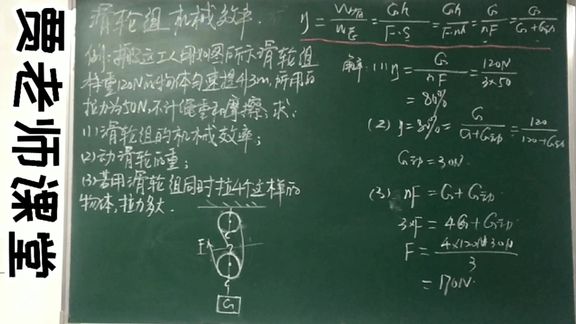 贾老师课堂
滑轮组机械效率.
η = W有/W总 = Gh/F·S = Gh/F·nh = G/nF = G/G+G动
例:搬运工人用如图所示滑轮组
将重120N的物体匀速提升3m,所用的
拉力为50N,不计绳重和摩擦,求:
(1)滑轮组的机械效率;
(2)动滑轮的重;
(3)若用滑轮组同时拉4个这样的
物体,拉力多大.
F
G
解:(1) η = G/nF = 120N/3×50
= 80%
(2) η = 80% = G/G+G动 = 120/120+G动
G动 = 30N.
(3) nF = G+G动
3×F = 4G+G动
F = 4×120N+30N/3
= 170N.